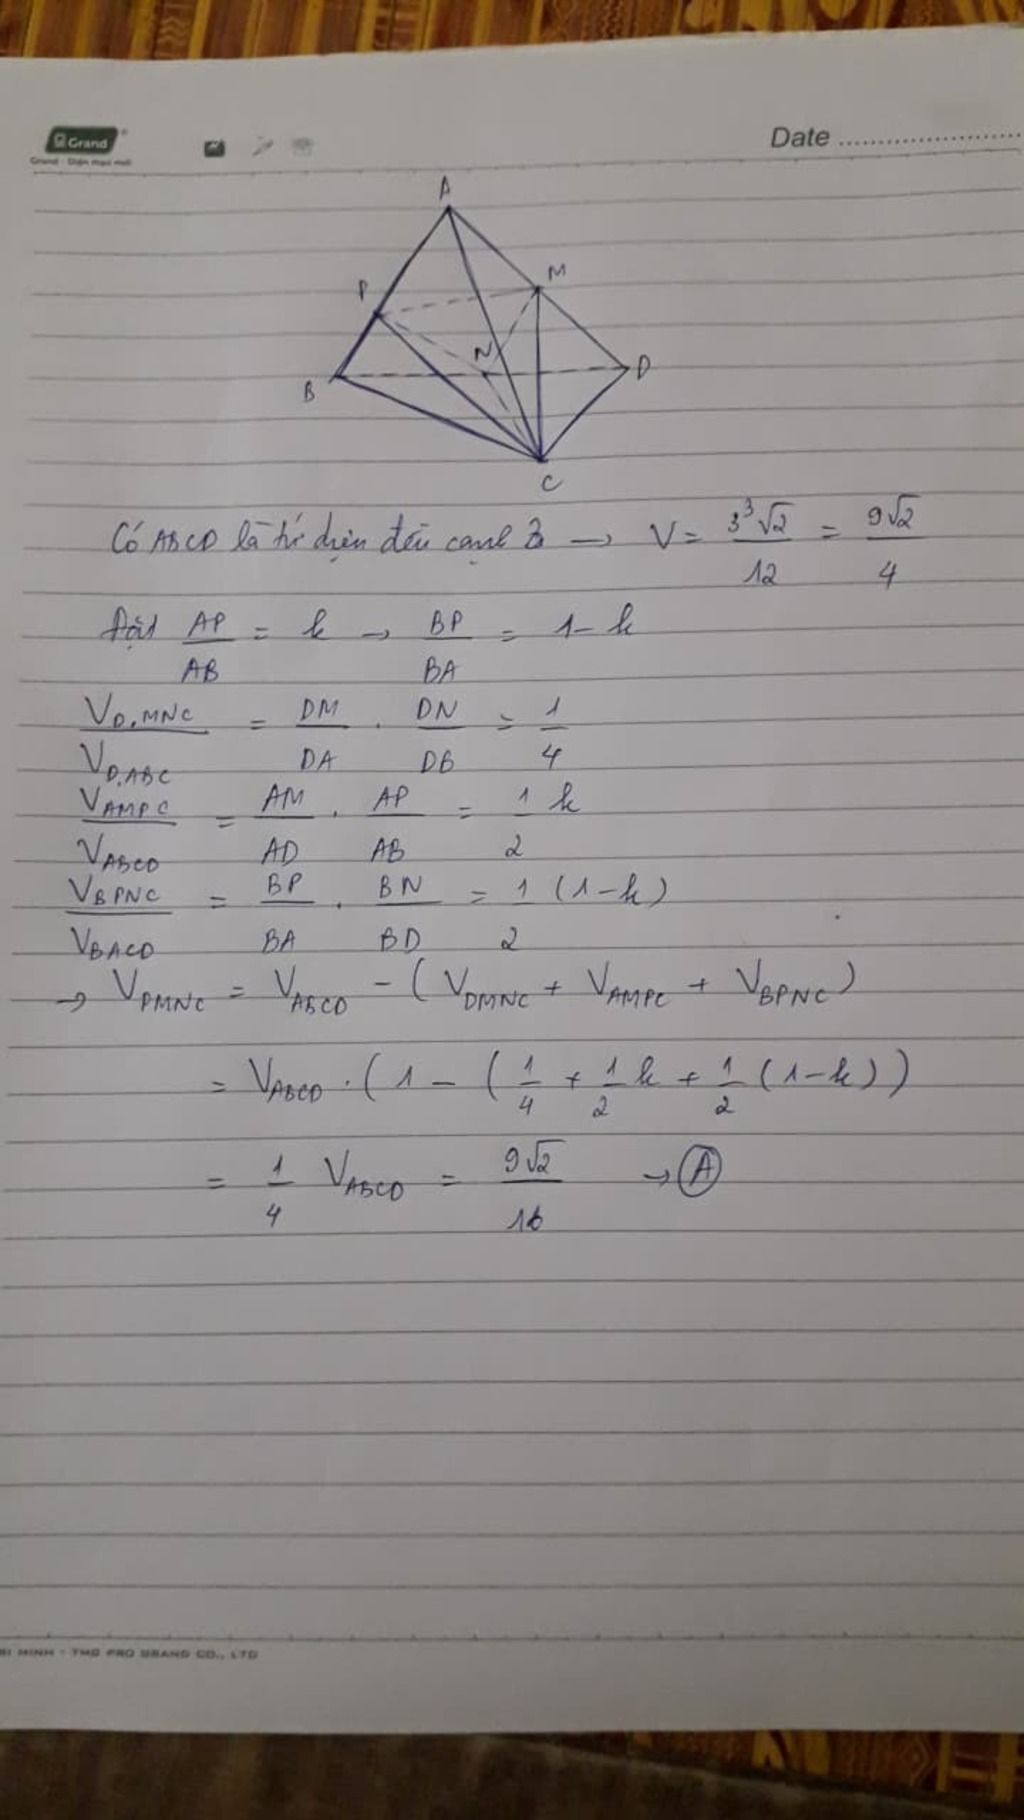 Grand
Grand - Diện mạo mới
Date
A
P
M
N
B
D
C
Có ABCD là tứ diện đều cạnh 3 → V = 3³√2 / 12 = 9√2 / 4
Đặt AP/AB = k → BP/BA = 1 - k
V_D.MNC / V_D.ABC = DM/DA . DN/DB = 1/4
V_AMPC / V_ABCD = AM/AD . AP/AB = 1/2 k
V_BPNC / V_BACD = BP/BA . BN/BD = 1/2 (1-k)
→ V_PMNC = V_ABCD - (V_DMNC + V_AMPC + V_BPNC)
= V_ABCD . (1 - (1/4 + 1/2 k + 1/2 (1-k))
= 1/4 V_ABCD = 9√2 / 16 → A
MINH - TMG PRO GRAND CO., LTD